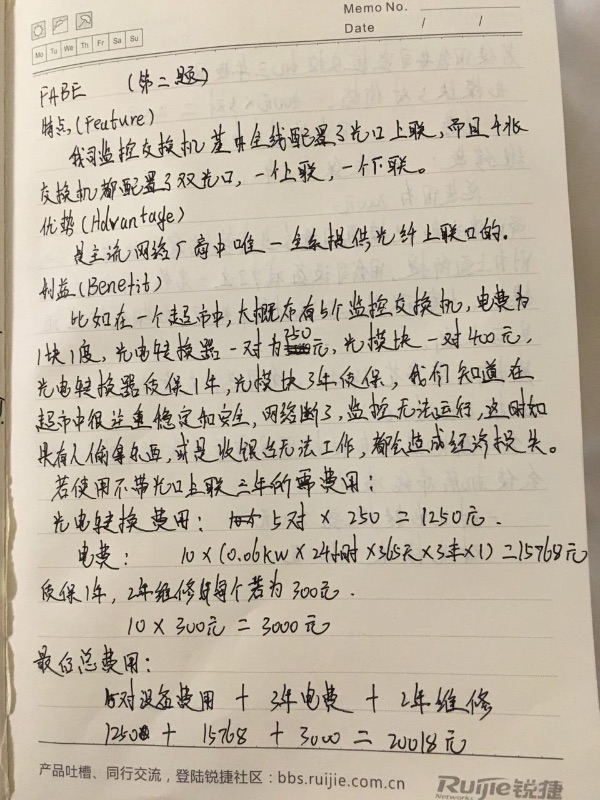 Memo No.
Date / /
Mo Tu We Th Fr Sa Su
FABE (第二题)
特点(Feature)
我司监控交换机基本全线配置了光口上联,而且千兆
交换机都配置了双光口,一个上联,一个下联。
优势(Advantage)
是主流网络厂商中唯一全系提供光纤上联口的.
利益(Benefit)
比如在一个超市中,大概布有5个监控交换机,电费为
1块1度,光电转换器一对为250元,光模块一对400元,
光电转换器质保1年,光模块3年质保,我们知道在
超市中很注重稳定和安全,网络断了,监控无法运行,这时如
果有人偷拿东西,或是收银台无法工作,都会造成经济损失。
若使用不带光口上联三年所需费用:
光电转换费用: 5对 × 250 = 1250元.
电费: 10 × (0.06kw × 24小时 × 365天 × 3年 × 1) = 15768元
质保1年, 2年维修每个若为300元.
10 × 300元 = 3000元
最后总费用:
5对设备费用 + 3年电费 + 2年维修
1250 + 15768 + 3000 = 20018元
产品吐槽、同行交流,登陆锐捷社区:bbs.ruijie.com.cn
Ruijie锐捷
Networks